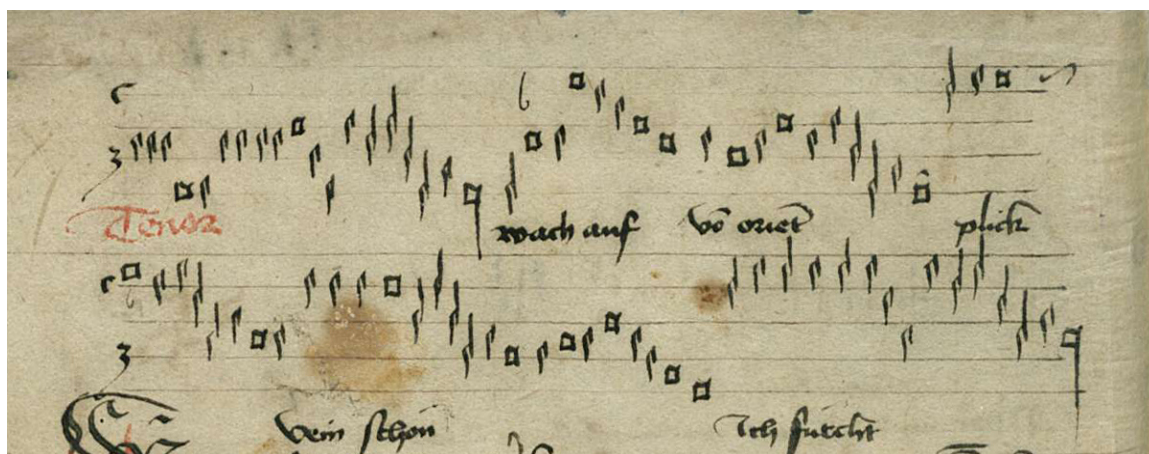 Tenor wach auf vō oriēt plick
vein schon Ich furcht